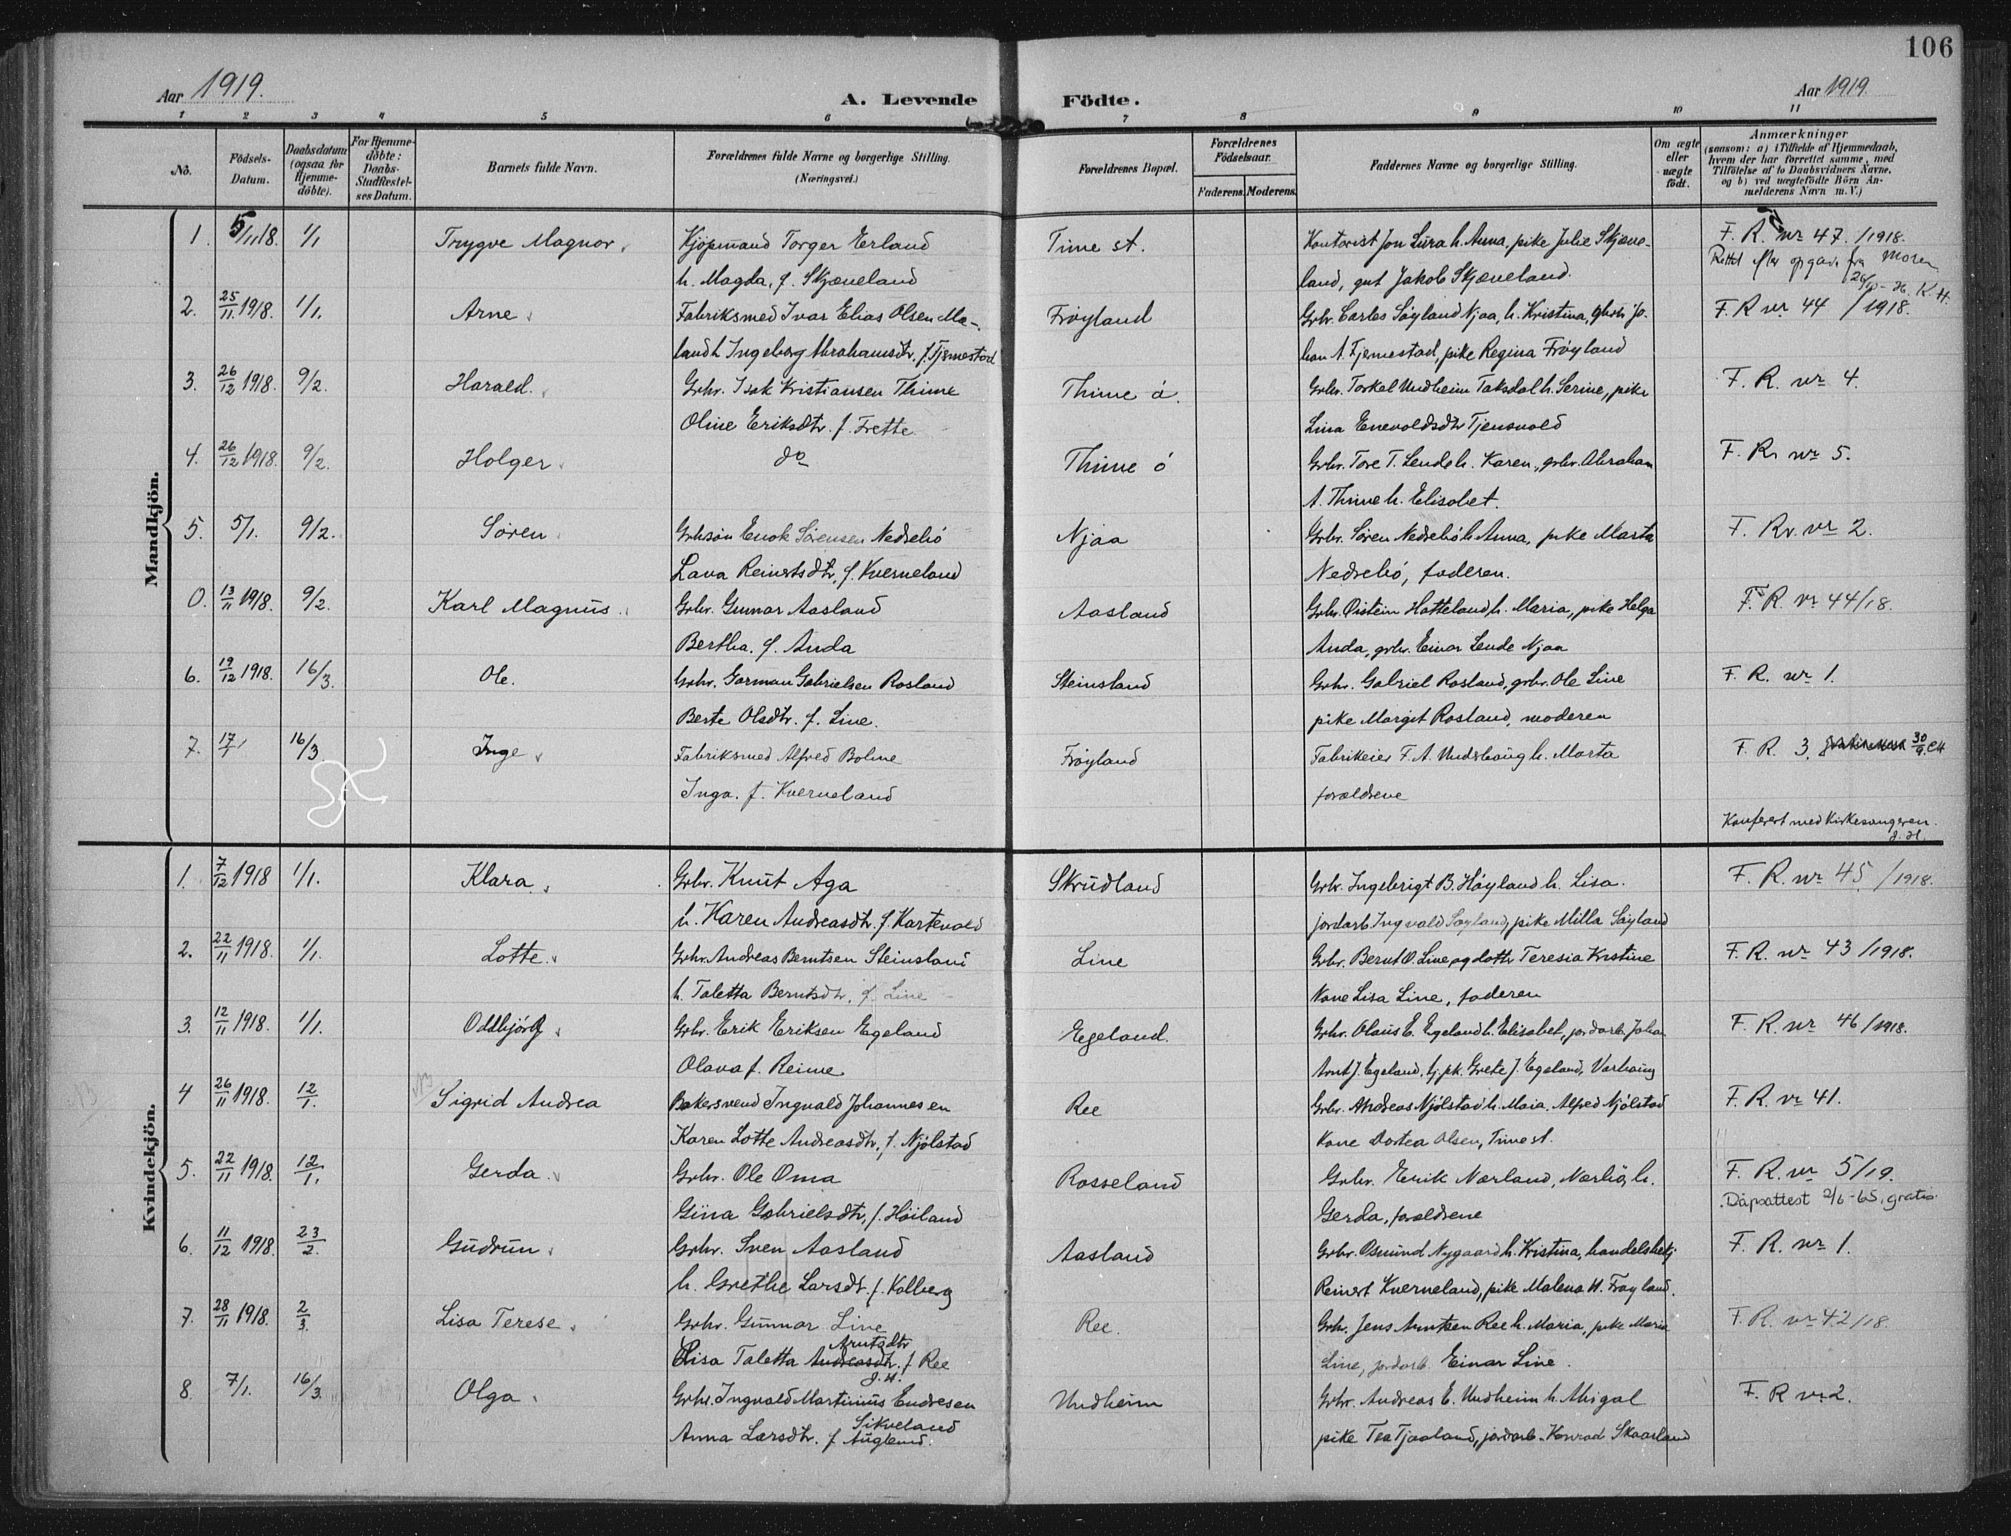 106
Aar 1919.
A. Levende Födte.
Aar 1919.
1 2 3 4 5 6 7 8 9 10 11
No.
Födsels-Datum.
Daabsdatum (ogsaa for Hjemme-döbte).
For Hjemme-döbte: Daabs-Stadfæstel-ses Datum.
Barnets fulde Navn.
Forældrenes fulde Navne og borgerlige Stilling. (Næringsvei.)
Forældrenes Bopæl.
Forældrenes Födselsaar.
Faderens. Moderens.
Faddernes Navne og borgerlige Stilling.
Om ægte eller uægte födt.
Anmærkninger
(saasom: a) i Tilfælde af Hjemmedaab, hvem der har forrettet samme, med Tilföielse af to Daabsvidners Navne, og b) ved uægtefödte Börn An-melderens Navn m. V.)
Mandkjön.
1. 5/11 18. 1/1 Trygve Magnor. Kjøpmand Torger Erland Time st. Kontorist Jon Lura h. Anna, pike Julie Skjæve- F. R. nr 47./1918.
h. Magda, f. Skjæveland land, gut Jakob Skjæveland. Rettet efter opgave fra moren
K. H.
2. 25/11 1918. 1/1. Arne Fabriksmed Ivar Elias Olsen Mæ- Frøyland Grbr. Carles Søyland Njaa, h. Kristina, gbrbr Jo- F. R nr 44 /1918.
land h Ingeborg Abrahamsdtr. f. Tjemestad han A. Tjemestad, pike Regina Frøyland
3. 26/12 1918. 9/2. Harald. Grbr. Isak Kristiansen Thime Thime ø. Grbr. Torkel Undheim Taksdal h. Serine, pike F. R. nr 4.
Oline Eriksdtr. f. Frette Lina Enevoldsdtr Tjensvold
4. 26/12 1918. 9/2. Holger do Thime ø Grbr. Tore T. Lende h. Karen, grbr. Abraham F. R. nr 5.
A. Thime h. Elisabet.
5. 5/1. 9/2. Søren Grbsøn Enok Sørensen Nedrebø Njaa Grbr. Søren Nedrebø h Anna, pike Marta F. R. nr 2.
Lava Reinertsdtr, f. Kverneland Nedrebø, faderen.
0. 13/11 1918. 9/2. Karl Magnus Grbr. Gunnar Aasland Aasland Grbr. Øistein Hatteland h. Maria, pike Helga F. R. nr 44/18.
Bertha. f. Anda Anda, grbr. Einar Lende Njaa
6. 19/12 1918. 16/3. Ole. Grbr. Gorman Gabrielsen Rosland Steinsland Grbr. Gabriel Rosland, grbr. Ole Line F. R. nr 1.
Berte Olsdtr. f. Line. pike Margit Rosland, moderen
7. 17/1 16/3 Inge Fabriksmed Alfred Bolme Frøyland Fabrikeier F. A. Undshaug h. Marta F. R. 3. 30/9
Inga. f. Kverneland forældrene
Konferert med kirkesangeren.
J. H.
Kvindekjön.
1. 7/12 1918 1/1. Klara. Grbr. Knut Aga Skrudland Grbr. Ingebrigt B. Høyland h. Lisa. F. R. nr 45 /1918.
h. Karen Andreasdtr. f. Kartevold jordarb. Ingvald Søyland, pike Milla Søyland
2. 22/11 1918. 1/1. Lotte. Grbr. Andreas Berntsen Steinsland Line Grbr. Bernt O. Line og dotter Teresia Kristine F. R. nr 43 /1918.
h. Taletta Berntsdtr. f. Line Kone Lisa Line, faderen
3. 12/11 1918. 1/1. Oddbjörg Grbr. Erik Eriksen Egeland Egeland. Grbr. Olaus E. Egeland h. Elisabet, jordarb. Johan F. R. nr 46 /1918.
Olava f. Reime Arnt J. Egeland, tj. pk. Grete J. Egeland, Varhaug
4 26/11 1918. 12/1. Sigrid Andrea Bakersvend Ingvald Johannesen Ree Grbr. Andreas Njølstad h. Maia, Alfred Njølstad F. R. nr 41.
Karen Lotte Andreasdtr. f. Njølstad Kone Dortea Olsen, Time st.
5. 22/11 1918. 12/1. Gerda. Grbr. Ole Oma Rosseland Grbr. Enrik Nærland, Nærbø, h. F. R. nr 5/19.
Gina Gabrielsdtr, f. Høiland Gerda, forældrene Dåpsattest 2/6-65, gratis
6. 11/12 1918. 23/2. Gudrun. Grbr. Sven Aasland Aasland Grbr. Osmund Nygaard h. Kristina, handelsbetj F. R. nr 1.
h. Grethe Larsdtr. f. Kolberg Reinert Kverneland, pike Malena H. Frøyland.
7. 28/11 1918. 2/3. Lisa Terese. Grbr. Gunnar Line Ree. Grbr. Jens Arntsen Ree h. Maria, pike Maria F. R. nr 42/18.
Arntsdtr
Elisa Taletta Andreasdtr. f Ree Line, jordarb. Einar Line.
J. H.
8. 7/1. 16/3. Olga Grbr. Ingvald Martinius Endresen Undheim Grbr. Andreas E. Undheim h. Abigal F. R nr 2.
Sikveland
Anna Larsdtr. f Auglend. pike Tea Tjaaland, jordarb. Konrad Skaarland